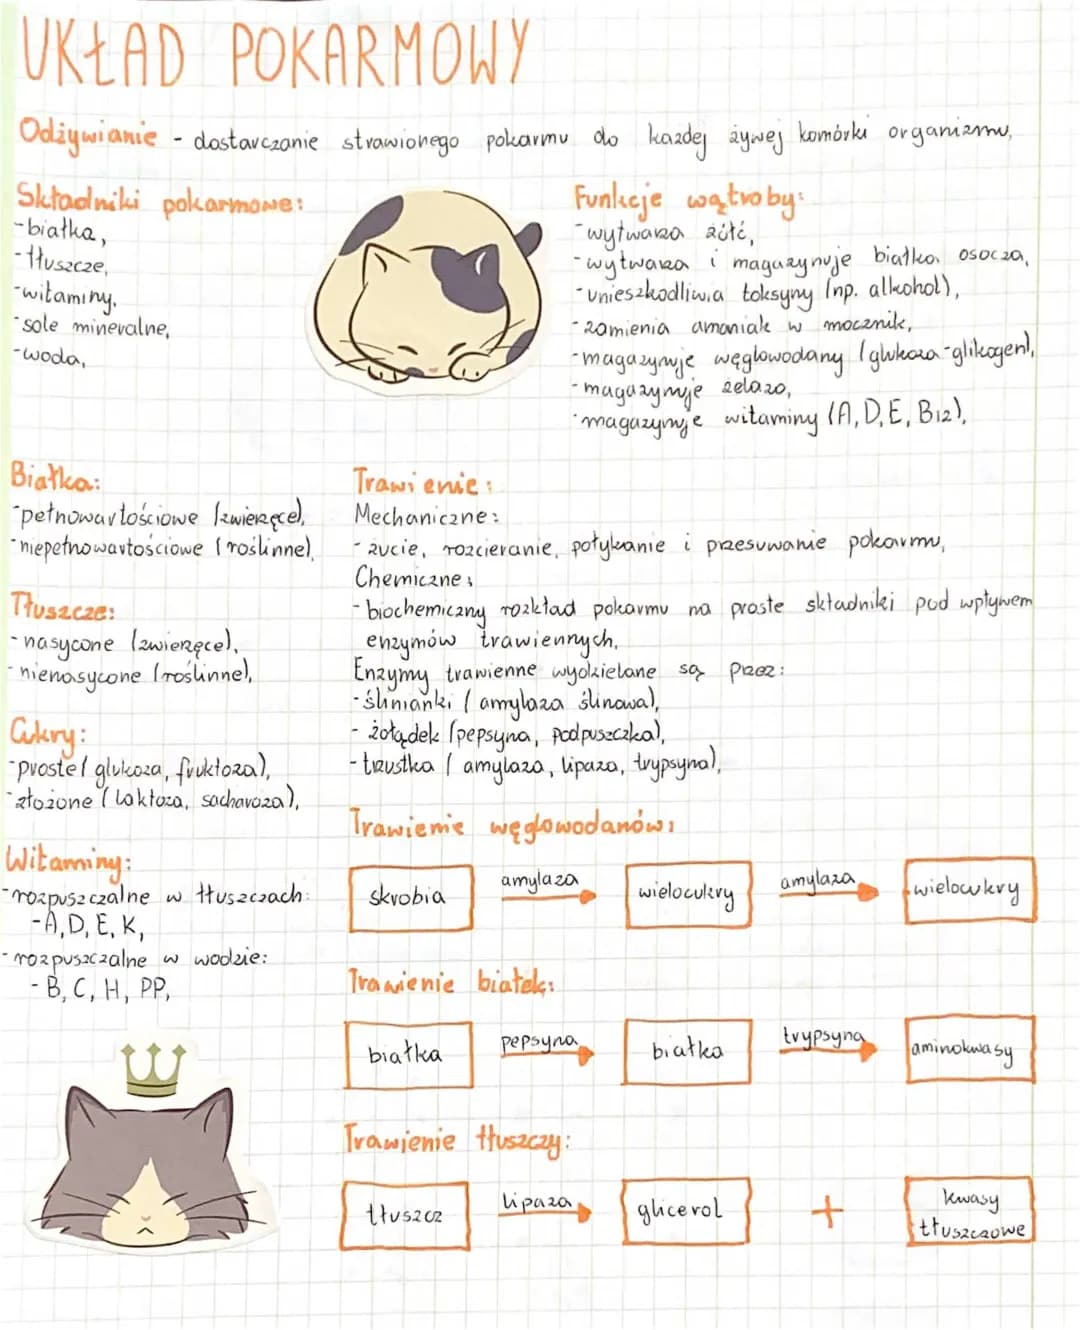 UKŁAD POKARMOWY
Odżywianie - dostarczanie strawionego pokarmu do każdej żywej komórki organizmu,
Składniki pokarmowe:
-białka,
-tłuszcze,
-witaminy,
-sole mineralne,
-woda,
Funkcje wątroby:
-wytwarza żółć,
-wytwarza i magazynuje białka osocza,
-unieszkodliwia toksyny (np. alkohol),
-zamienia amoniak w mocznik,
-magazynuje węglowodany (glukoza-glikogen),
-magazynuje żelazo,
-magazynuje witaminy (A, D, E, B12),
Białka:
-pełnowartościowe (zwierzęce),
-niepełnowartościowe (roślinne),
Tłuszcze:
-nasycone (zwierzęce),
-nienasycone (roślinne),
Cukry:
-proste (glukoza, fruktoza),
-złożone (laktoza, sacharoza),
Witaminy:
-rozpuszczalne w tłuszczach:
-A, D, E, K,
-rozpuszczalne w wodzie:
-B, C, H, PP,
Trawienie:
Mechaniczne:
-żucie, rozcieranie, połykanie i przesuwanie pokarmu,
Chemiczne:
-biochemiczny rozkład pokarmu na proste składniki pod wpływem
enzymów trawiennych,
Enzymy trawienne wydzielane są przez:
-ślinianki (amylaza ślinowa),
-żołądek (pepsyna, podpuszczka),
-trzustka (amylaza, lipaza, trypsyna),
Trawienie węglowodanów:
skrobia amylaza wielocukry amylaza wielocukry
Trawienie białek:
białka pepsyna białka trypsyna aminokwasy
Trawienie tłuszczy:
tłuszcz lipaza glicerol + kwasy
tłuszczowe